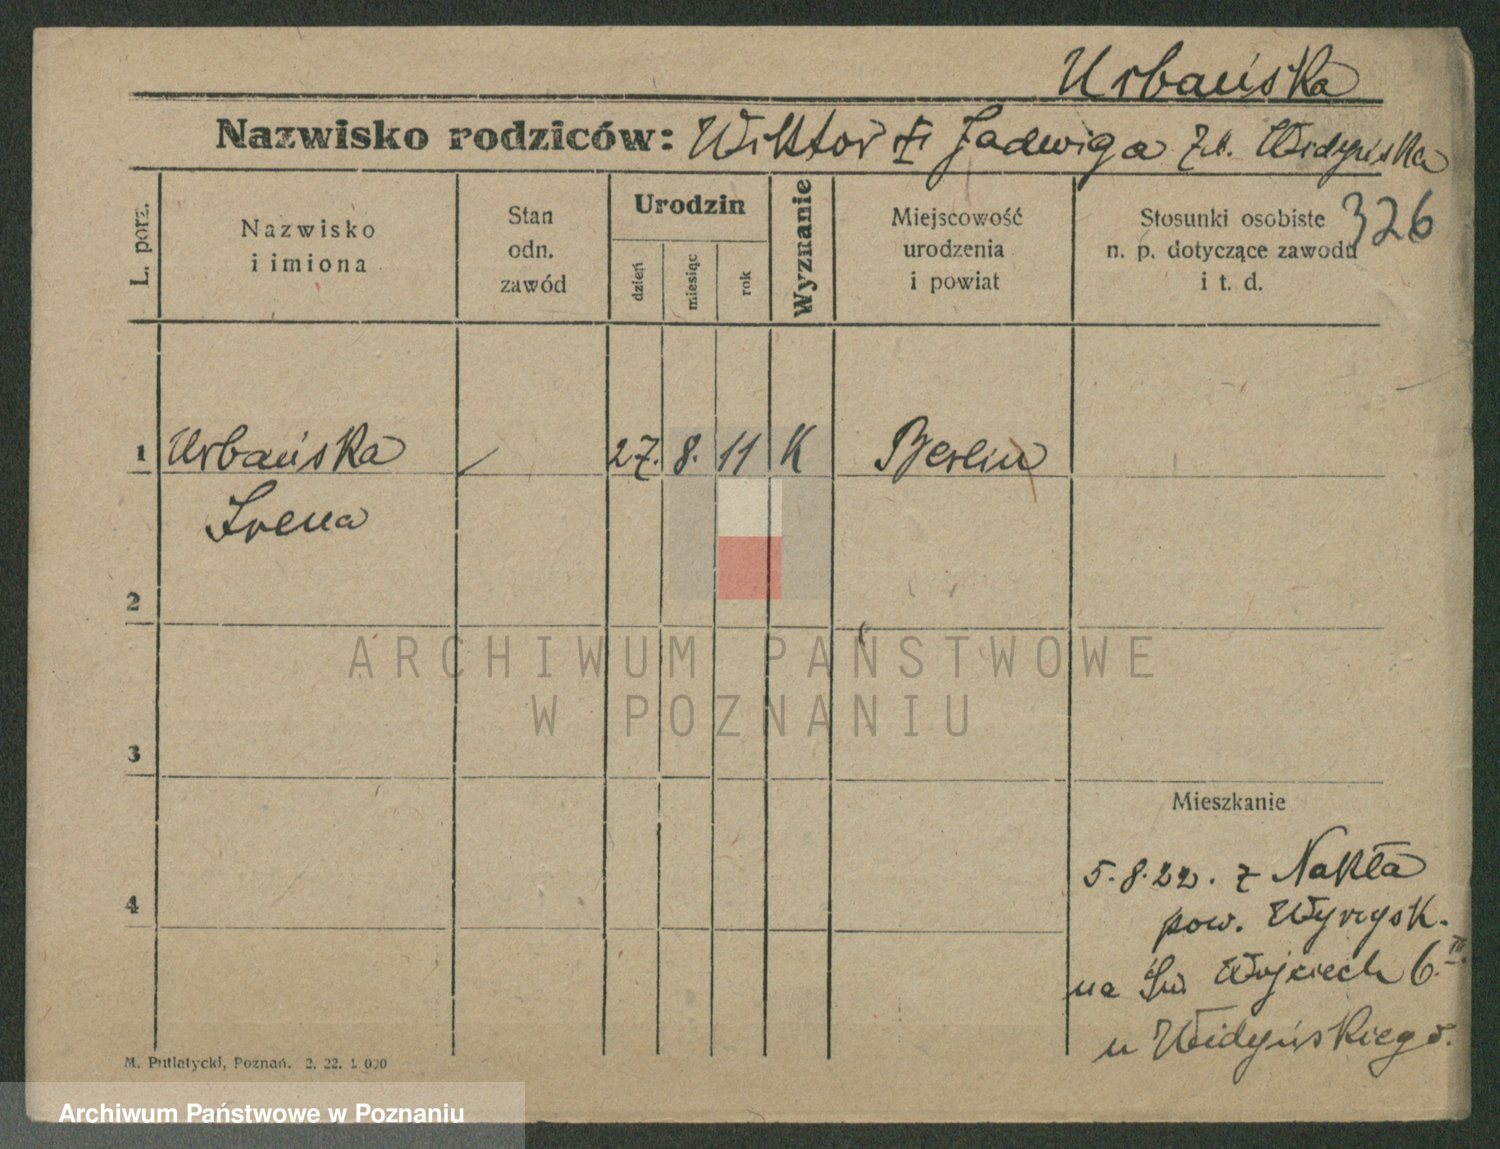 Urbańska
Nazwisko rodziców: Wiktor Jadwiga Widyńska
326
L. porz.
Nazwisko
i imiona
Stan
odn.
zawód
Urodzin
dzień
miesiąc
rok
Wyznanie
Miejscowość
urodzenia
i powiat
Stosunki osobiste
n. p. dotyczące zawodu
i t. d.
1 Urbańska 27. 8. 11 K Berlin
Irena
2
3
4
Mieszkanie
5.8.22. z Nakła
pow. Wyrzysk.
na Św Wojciech 6. III.
u Widyńskiego.
M. Putiatycki, Poznań. 2. 22. 1 000
ARCHIWUM PAŃSTWOWE
W POZNANIU
Archiwum Państwowe w Poznaniu